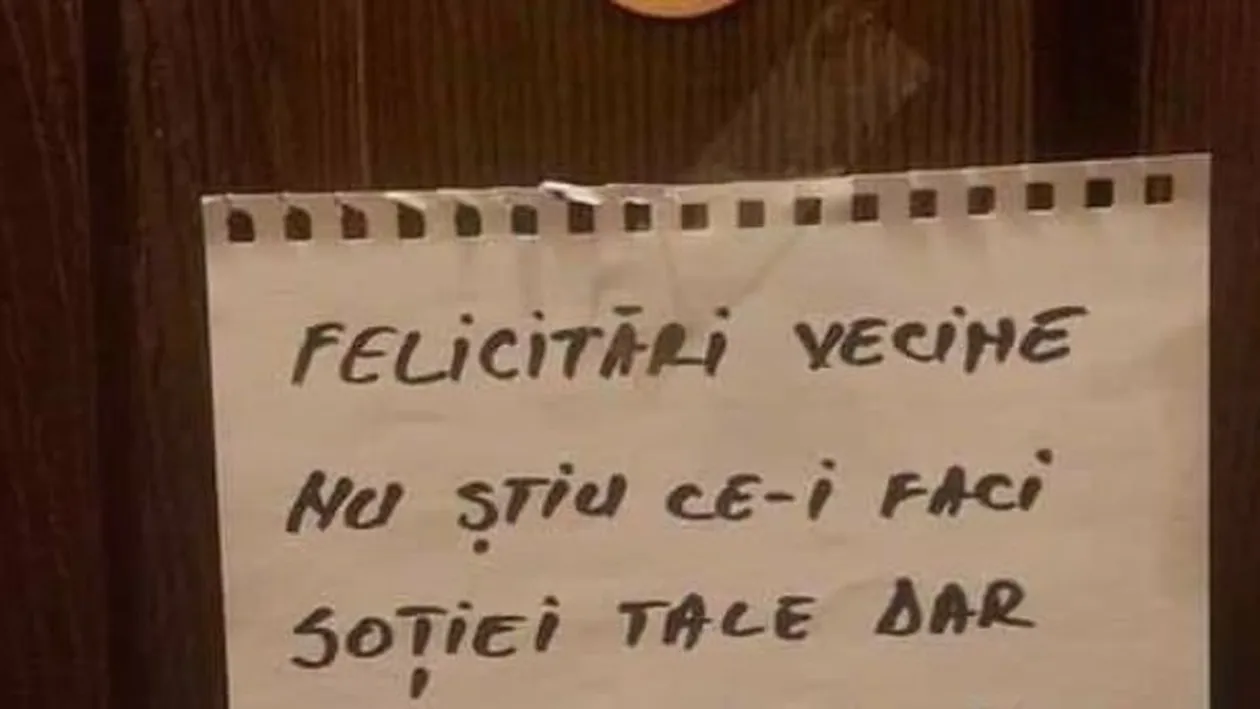 FELICITĂRI VECINE
NU ȘTIU CE-I FACI
SOȚIEI TALE DAR